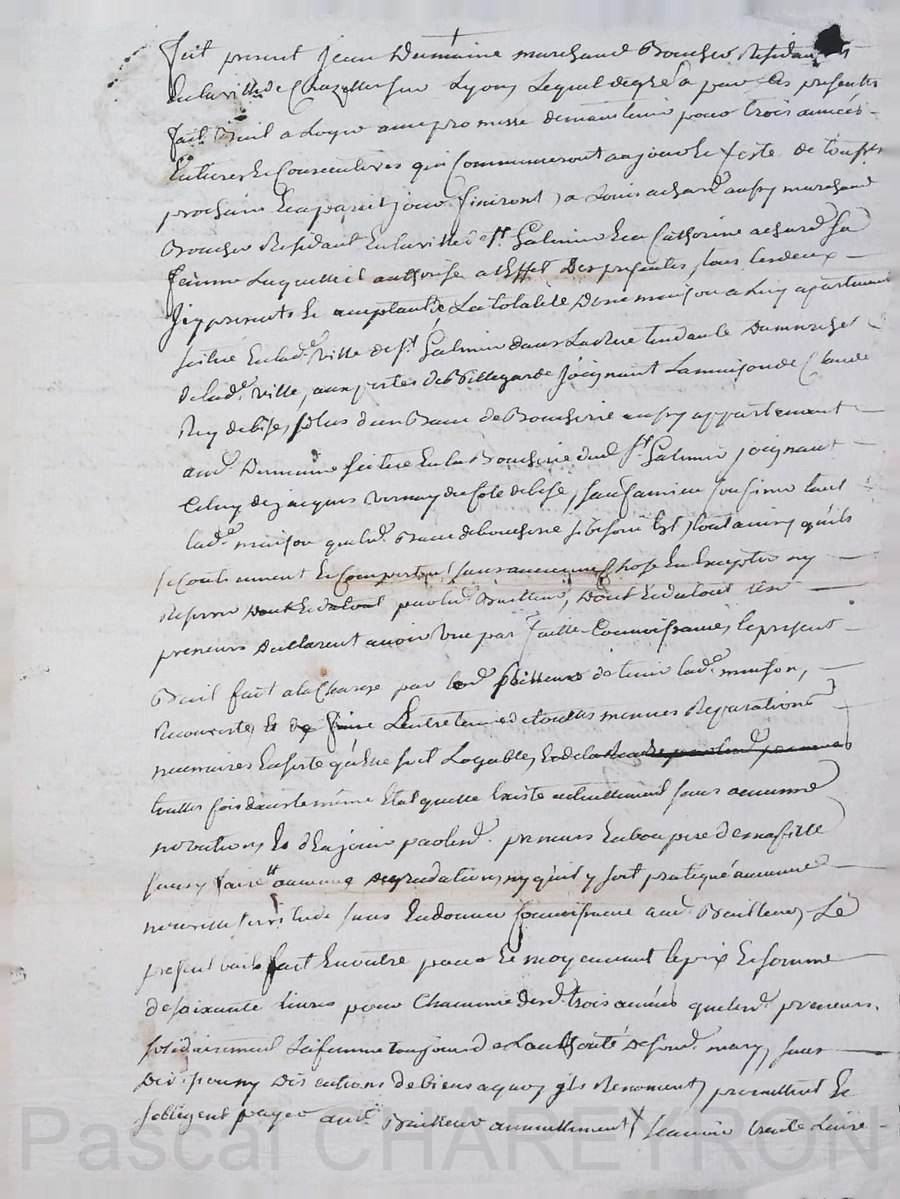 fut present Jean Dumaine marchand Boucher Residant
En la ville de Chazelles sur Lyon, Lequel de gré a par Ces presentes
fait Bail a Loyer avec promesse de maintenir pour trois années
Entieres Et Consecutives qui Commenceront au jour Et feste de toussts
prochain Et a pareil jour finiront, a Louis achard aussy marchand
Boucher Residant En la ville de st Galmier Et a Catherine achard sa
femme Laquelle il authorise a L'Effet Des presentes, tous les deux
Icy presents Et acceptants La totalité D'une maison a Luy apartenant
scituée En lad. ville de st Galmier dans La Rue tendante Du
de lad. ville, aux portes de Bellegarde Joignant La maison de Claude
Rey de bise, plus d'un Banc de Boucherie aussy appartenant
aud. Dumaine scitué En la Boucherie dud. st Galmier joignant
Celuy de jacques Vernay du Coté de bise, sauf a mieux Confiner tant
lad. maison que led. Banc de boucherie si besoin Est, tout ainsy qu'ils
se Contiennent Et Comportent sans aucune Chose En Excepter ny
Reserver par led. Bailleur, Dont Et du tout Les d.
preneurs Declarent avoir Vue par faitte Connoissance, le present
Bail fait a la Charge par led. Bailleur de tenir lad. maison,
Recouverte, Et de faire L'entretenir de touttes menues Reparations
necessaires En sorte qu'elle soit Logeable, Et de la
touttes fois dans le même Etat quelle Existe actuellement sans aucune
novation, Et d'En jouir par led. preneurs En bon pere de famille
sans y faire aucunne Degradation, ny qu'il y soit pratiqué aucunne
nouvelle servitude sans En donner Connoissance aud. Bailleur, Le
present bail fait En outre pour Et moyennant le prix Et somme
de soixante livres pour Chacunne desd. trois années que led. preneurs
solidairement La femme toujours de L'authorité De son d. mary, sans
Division ny Discutions de biens a quoy ils Renoncent, promettent Et
s'obligent payer aud. Bailleur annuellement X scavoir trente Livre
Pascal CHAREYRON